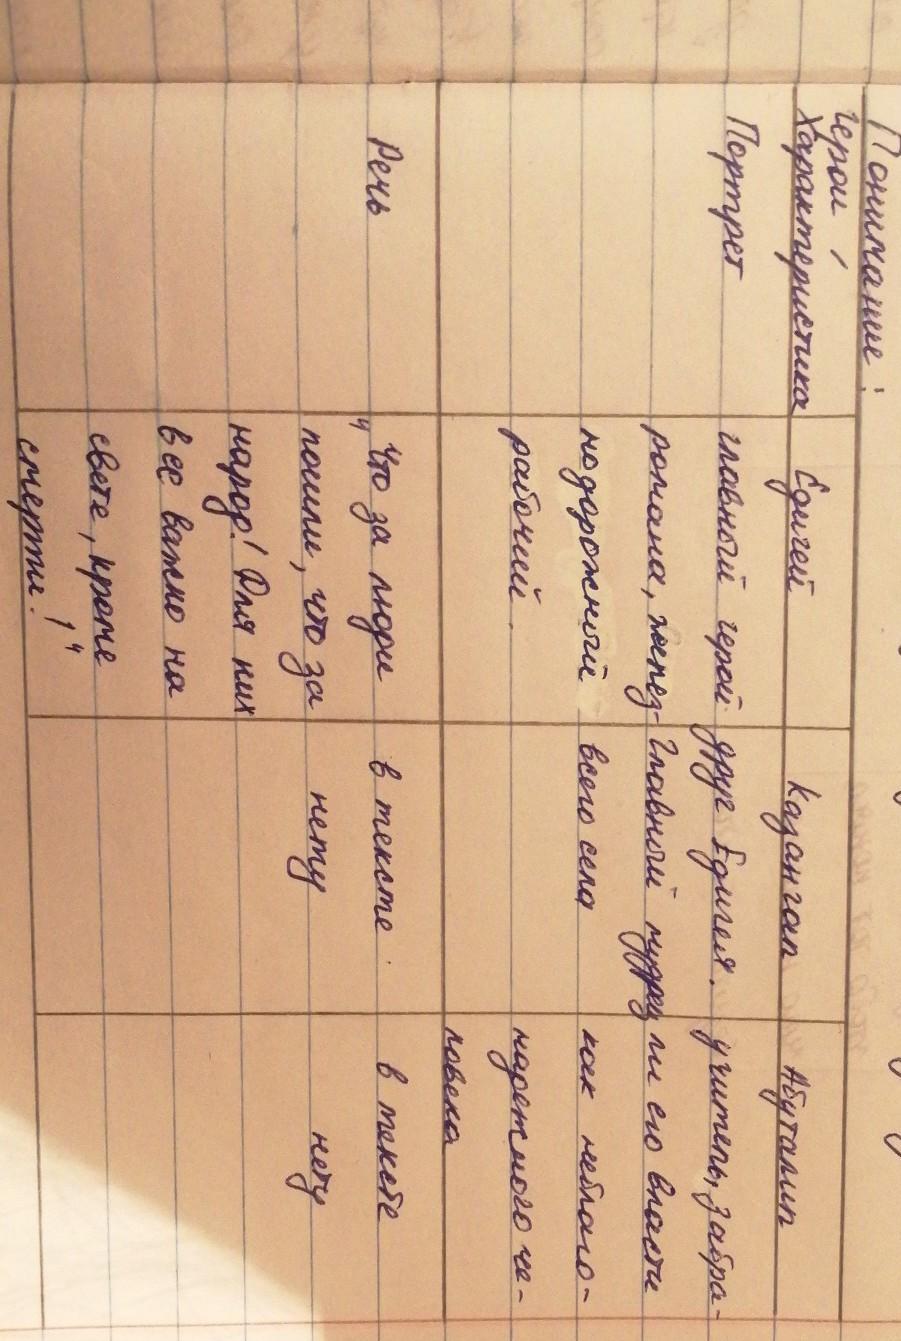 Понимание:
герой /
Характеристика
Едигей
Казангап
Абуталип
Портрет
главный герой
романа, желез-
нодорожный
рабочий.
друг Едигея.
Главный мудрец
всего села
учитель, забра-
ли его власти
как неблаго-
надежного че-
ловека
Речь
"Что за люди
пошли, что за
народ! Для них
все важно на
свете, кроме
смерти!"
в тексте
нету
в тексте
нету